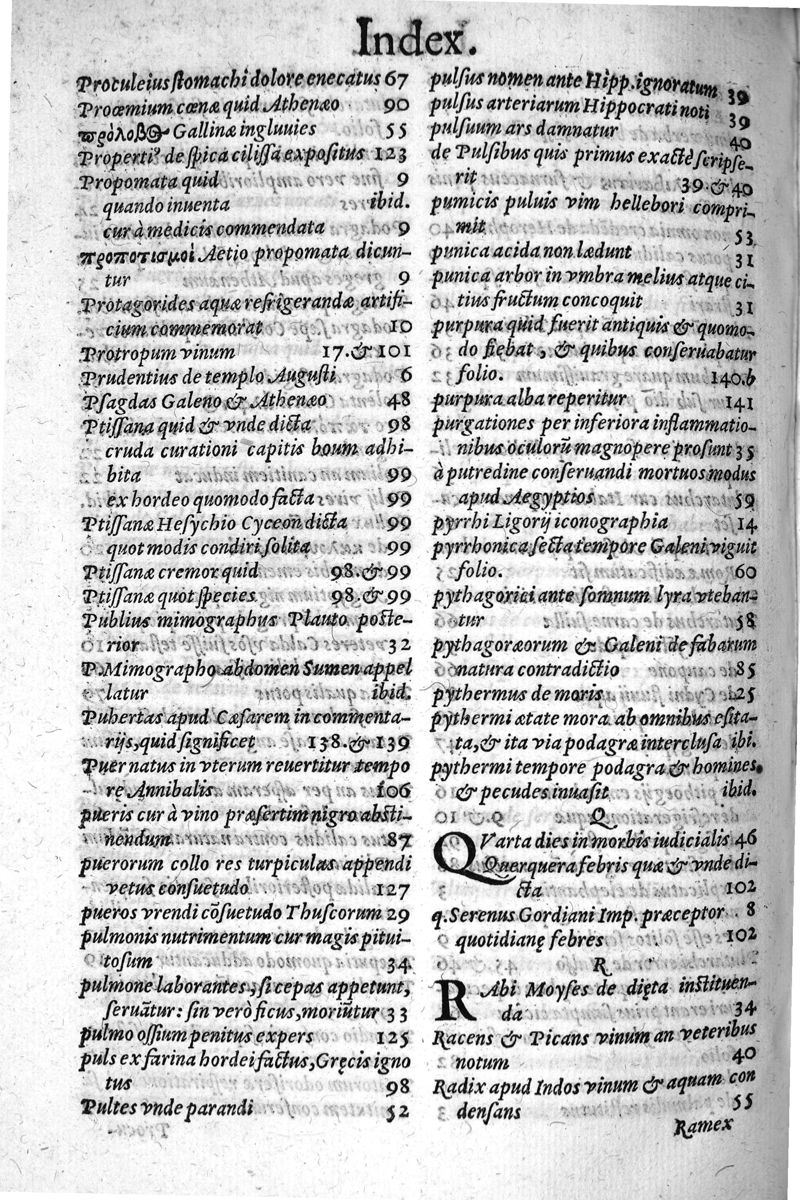 Index.
Proculeius ſtomachi dolore enecatus 67
Proœmium cœnæ quid Athenæo 90
πρόλοβος Gallinæ ingluuies 55
Properti⁹ de ſpica ciliſſa expoſitus 123
Propomata quid 9
quando inuenta ibid.
cur à medicis commendata 9
προποτισμοὶ Aetio propomata dicun-
tur 9
Protagorides aquæ refrigerandæ artifi-
cium commemorat 10
Protropum vinum 17. & 101
Prudentius de templo Auguſti 6
Pſagdas Galeno & Athenæo 48
Ptiſſana quid & vnde dicta 98
cruda curationi capitis boum adhi-
bita 99
ex hordeo quomodo facta 99
Ptiſſanæ Heſychio Cyceon dicta 99
quot modis condiri ſolita 99
Ptiſſanæ cremor quid 98. & 99
Ptiſſanæ quot ſpecies 98. & 99
Publius mimographus Plauto poſte-
rior 32
P. Mimographo abdomen Sumen appel
latur ibid.
Pubertas apud Cæſarem in commenta-
rijs, quid ſignificet 138. & 139
Puer natus in vterum reuertitur tempo
rę Annibalis 106
pueris cur à vino præſertim nigro abſti-
nendum 87
puerorum collo res turpiculas appendi
vetus conſuetudo 127
pueros vrendi cōſuetudo Thuſcorum 29
pulmonis nutrimentum cur magis pitui-
toſum 34
pulmone laborantes, ſi cepas appetunt,
ſeruãtur: ſin verò ficus, moriũtur 33
pulmo oſſium penitus expers 125
puls ex farina hordei factus, Gręcis igno
tus 98
Pultes vnde parandi 52
pulſus nomen ante Hipp. ignoratum 39
pulſus arteriarum Hippocrati noti 39
pulſuum ars damnatur 40
de Pulſibus quis primus exactè ſcripſe-
rit 39. & 40
pumicis puluis vim hellebori compri-
mit 53
punica acida non lædunt 31
punica arbor in vmbra melius atque ci-
tius fructum concoquit 31
purpura quid fuerit antiquis & quomo-
do fiebat, & quibus conſeruabatur
folio. 140.b
purpura alba reperitur 141
purgationes per inferiora inflammatio-
nibus oculorũ magnopere proſunt 35
à putredine conſeruandi mortuos modus
apud Aegyptios 59
pyrrhi Ligorij iconographia 14
pyrrhonica ſecta tempore Galeni viguit
folio. 60
pythagorici ante ſomnum lyra vteban-
tur 58
pythagoræorum & Galeni de fabarum
natura contradictio 85
pythermus de moris 125
pythermi ætate mora ab omnibus eſita-
ta, & ita via podagræ intercluſa ibi.
pythermi tempore podagra & homines
& pecudes inuaſit ibid.
Q
QVarta dies in morbis iudicialis 46
Querquera febris quæ & vnde di-
cta 102
q. Serenus Gordiani Imp. præceptor . 8
quotidianę febres 102
R
RAbi Moyſes de dięta inſtituen-
da 34
Racens & Picans vinum an veteribus
notum 40
Radix apud Indos vinum & aquam con
denſans 55
Ramex